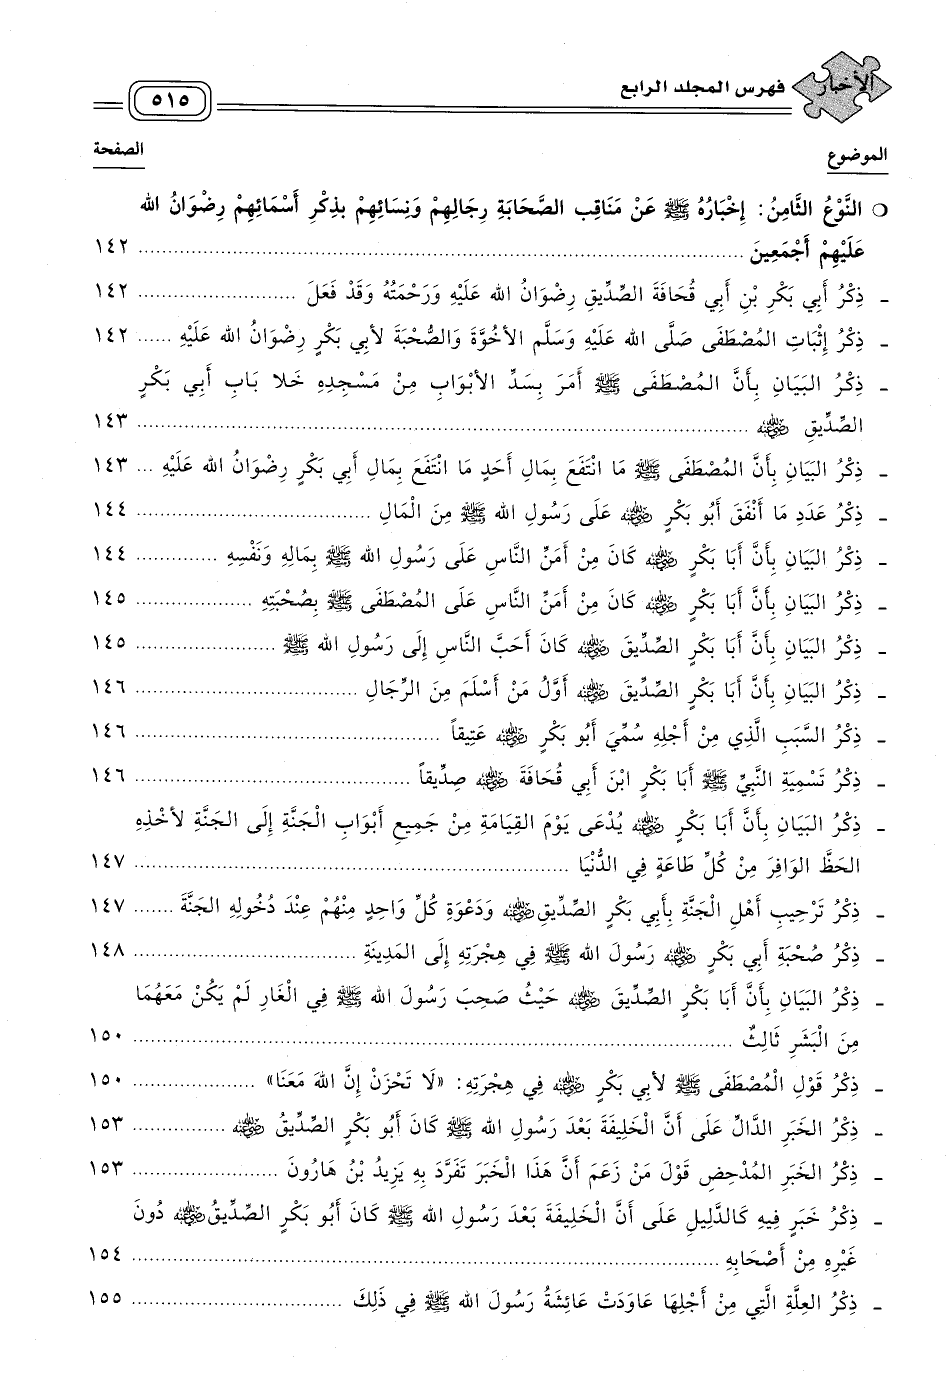 الأخبار
فهرس المجلد الرابع
٥١٥
الموضوع الصفحة
○ النَّوْعُ الثَّامِنُ: إِخْبَارُهُ ﷺ عَنْ مَنَاقِبِ الصَّحَابَةِ رِجَالِهِمْ وَنِسَائِهِمْ بِذِكْرِ أَسْمَائِهِمْ رِضْوَانُ الله
عَلَيْهِمْ أَجْمَعِينَ ........ ١٤٢
- ذِكْرُ أَبِي بَكْرِ بْنِ أَبِي قُحَافَةَ الصِّدِّيقِ رِضْوَانُ الله عَلَيْهِ وَرَحْمَتُهُ وَقَدْ فَعَلَ ........ ١٤٢
- ذِكْرُ إِثْبَاتِ المُصْطَفَى صَلَّى الله عَلَيْهِ وَسَلَّم الأُخُوَّةَ وَالصُّحْبَةَ لأَبِي بَكْرٍ رِضْوَانُ الله عَلَيْهِ ...... ١٤٢
- ذِكْرُ البَيَانِ بِأَنَّ المُصْطَفَى ﷺ أَمَرَ بِسَدِّ الأَبْوَابِ مِنْ مَسْجِدِهِ خَلا بَابِ أَبِي بَكْرٍ
الصِّدِّيقِ رضي الله عنه ........ ١٤٣
- ذِكْرُ البَيَانِ بِأَنَّ المُصْطَفَى ﷺ مَا انْتَفَعَ بِمَالِ أَحَدٍ مَا انْتَفَعَ بِمَالِ أَبِي بَكْرٍ رِضْوَانُ الله عَلَيْهِ ... ١٤٣
- ذِكْرُ عَدَدِ مَا أَنْفَقَ أَبُو بَكْرٍ رضي الله عنه عَلَى رَسُولِ الله ﷺ مِنَ الْمَالِ ........ ١٤٤
- ذِكْرُ البَيَانِ بِأَنَّ أَبَا بَكْرٍ رضي الله عنه كَانَ مِنْ أَمَنِّ النَّاسِ عَلَى رَسُولِ الله ﷺ بِمَالِهِ وَنَفْسِهِ ........ ١٤٤
- ذِكْرُ البَيَانِ بِأَنَّ أَبَا بَكْرٍ رضي الله عنه كَانَ مِنْ أَمَنِّ النَّاسِ عَلَى المُصْطَفَى ﷺ بِصُحْبَتِهِ ........ ١٤٥
- ذِكْرُ البَيَانِ بِأَنَّ أَبَا بَكْرٍ الصِّدِّيقَ رضي الله عنه كَانَ أَحَبَّ النَّاسِ إِلَى رَسُولِ الله ﷺ ........ ١٤٥
- ذِكْرُ البَيَانِ بِأَنَّ أَبَا بَكْرٍ الصِّدِّيقَ رضي الله عنه أَوَّلُ مَنْ أَسْلَمَ مِنَ الرِّجَالِ ........ ١٤٦
- ذِكْرُ السَّبَبِ الَّذِي مِنْ أَجْلِهِ سُمِّيَ أَبُو بَكْرٍ رضي الله عنه عَتِيقاً ........ ١٤٦
- ذِكْرُ تَسْمِيَةِ النَّبِيِّ ﷺ أَبَا بَكْرٍ ابْنَ أَبِي قُحَافَةَ رضي الله عنه صِدِّيقاً ........ ١٤٦
- ذِكْرُ البَيَانِ بِأَنَّ أَبَا بَكْرٍ رضي الله عنه يُدْعَى يَوْمَ القِيَامَةِ مِنْ جَمِيعِ أَبْوَابِ الْجَنَّةِ إِلَى الجَنَّةِ لأخْذِهِ
الحَظَّ الوَافِرَ مِنْ كُلِّ طَاعَةٍ فِي الدُّنْيَا ........ ١٤٧
- ذِكْرُ تَرْحِيبِ أَهْلِ الْجَنَّةِ بِأَبِي بَكْرٍ الصِّدِّيقِ رضي الله عنه وَدَعْوَةِ كُلِّ وَاحِدٍ مِنْهُمْ عِنْدَ دُخُولِهِ الجَنَّةَ ....... ١٤٧
- ذِكْرُ صُحْبَةِ أَبِي بَكْرٍ رضي الله عنه رَسُولَ الله ﷺ فِي هِجْرَتِهِ إِلَى المَدِينَةِ ........ ١٤٨
- ذِكْرُ البَيَانِ بِأَنَّ أَبَا بَكْرٍ الصِّدِّيقَ رضي الله عنه حَيْثُ صَحِبَ رَسُولَ الله ﷺ فِي الْغَارِ لَمْ يَكُنْ مَعَهُمَا
مِنَ الْبَشَرِ ثَالِثٌ ........ ١٥٠
- ذِكْرُ قَوْلِ الْمُصْطَفَى ﷺ لأَبِي بَكْرٍ رضي الله عنه فِي هِجْرَتِهِ: «لَا تَحْزَنْ إِنَّ اللهَ مَعَنَا» ........ ١٥٠
- ذِكْرُ الخَبَرِ الدَّالِّ عَلَى أَنَّ الْخَلِيفَةَ بَعْدَ رَسُولِ الله ﷺ كَانَ أَبُو بَكْرٍ الصِّدِّيقُ رضي الله عنه ........ ١٥٣
- ذِكْرُ الخَبَرِ المُدْحِضِ قَوْلَ مَنْ زَعَمَ أَنَّ هَذَا الْخَبَرَ تَفَرَّدَ بِهِ يَزِيدُ بْنُ هَارُونَ ........ ١٥٣
- ذِكْرُ خَبَرٍ فِيهِ كَالدَّلِيلِ عَلَى أَنَّ الْخَلِيفَةَ بَعْدَ رَسُولِ الله ﷺ كَانَ أَبُو بَكْرٍ الصِّدِّيقُ رضي الله عنه دُونَ
غَيْرِهِ مِنْ أَصْحَابِهِ ........ ١٥٤
- ذِكْرُ العِلَّةِ الَّتِي مِنْ أَجْلِهَا عَاوَدَتْ عَائِشَةُ رَسُولَ الله ﷺ فِي ذَلِكَ ........ ١٥٥